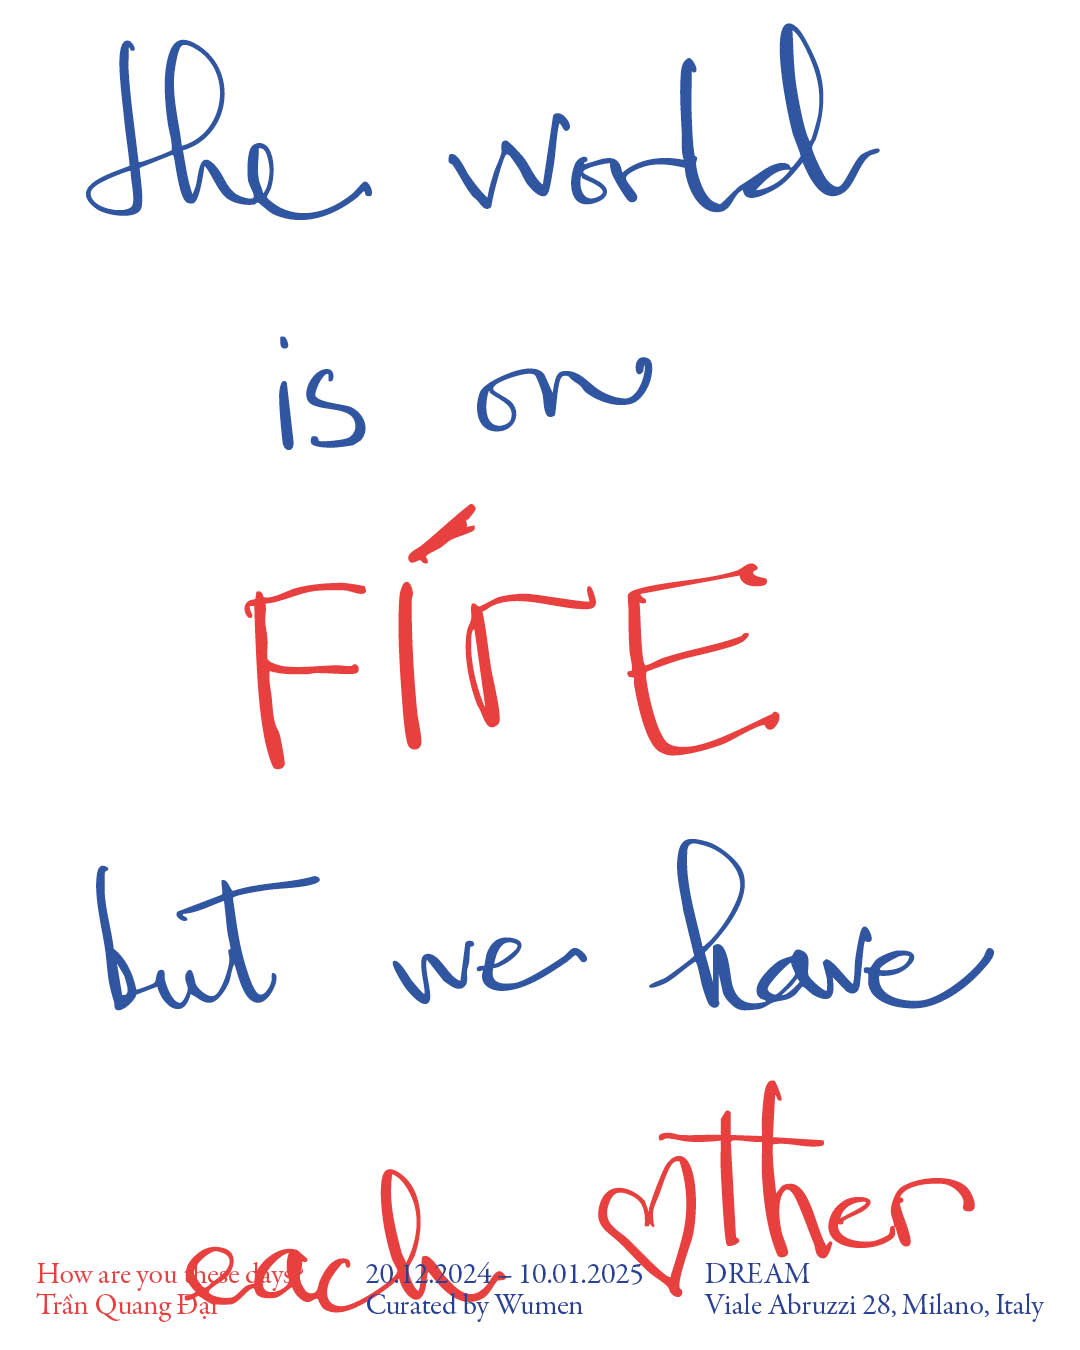 the world
is on
FírE
but we have
each ♡ther
How are you these days?
Trần Quang Đại
20.12.2024 – 10.01.2025
Curated by Wumen
DREAM
Viale Abruzzi 28, Milano, Italy